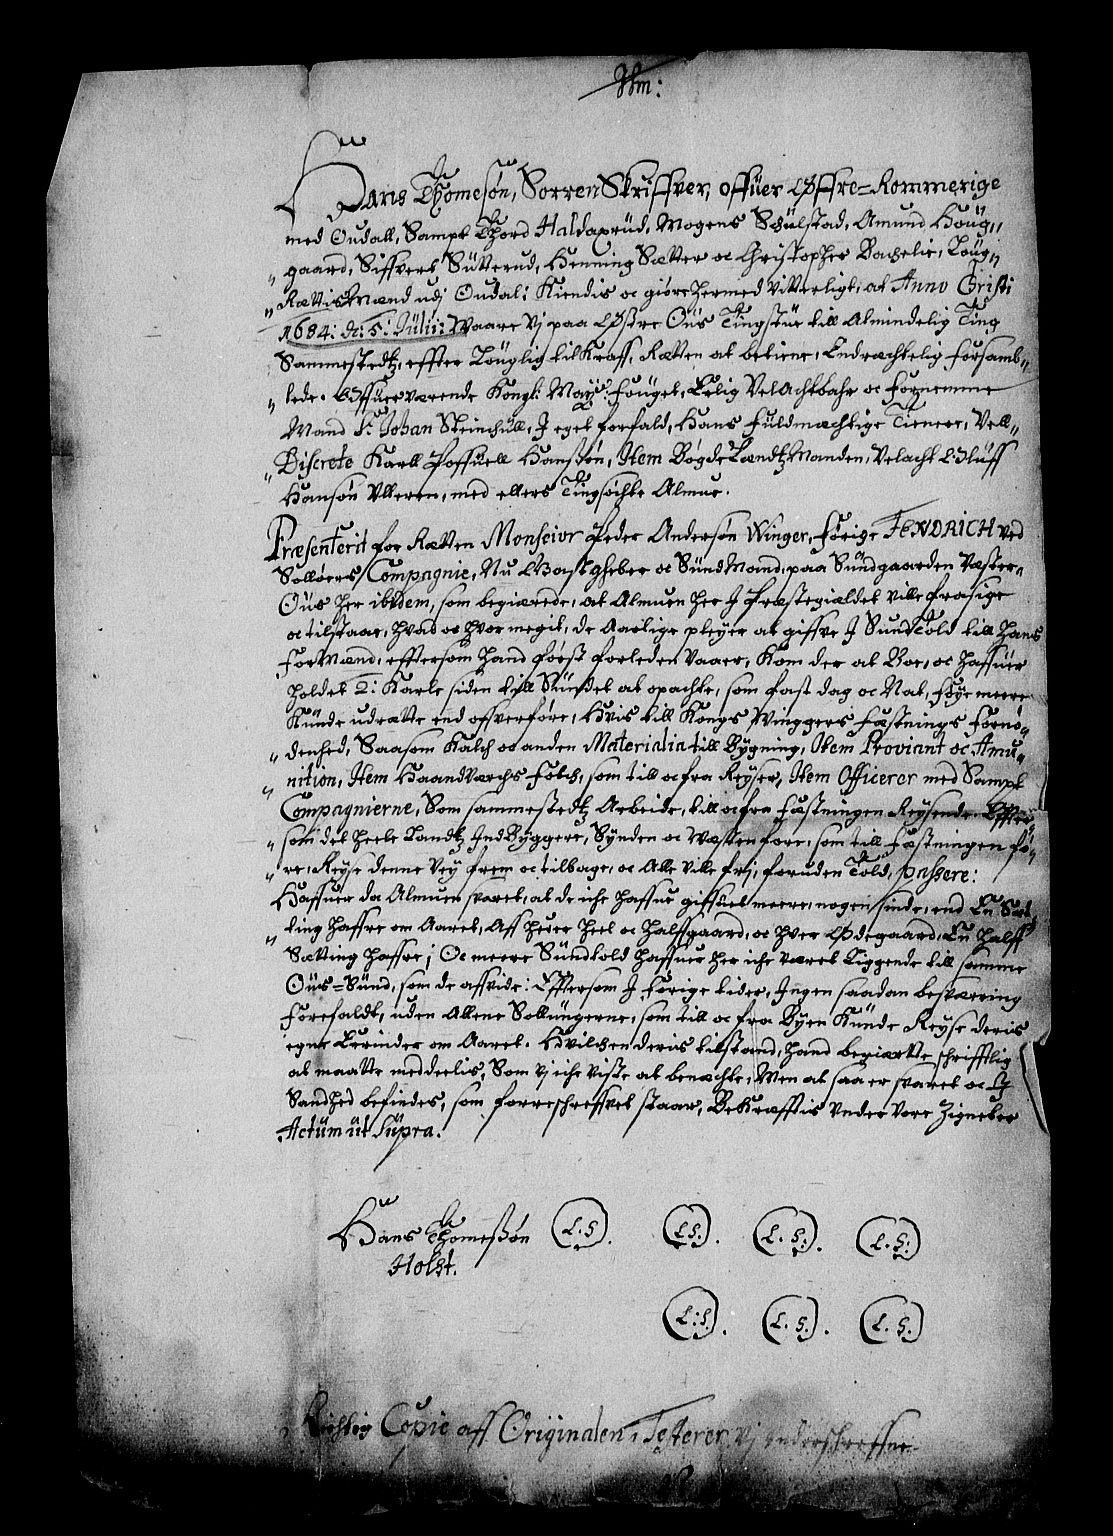 Hm:
Hans Thomesøn, Sorren Skriffver, offuer Øffre=Rommerige
med Oudall, Sampt Thord Haldaxrüd, Mogens Schülstad, Amund Houg,,
,, gaard, Siffvert Sütterud, Henning Sætter oc Christopher Bachelie, Loug,,
,, Rættismænd udj Oudal; Kiendis oc giøre hermed Vitterligt, at Anno Christi
1684: d: 5: Julij: Waare Vj paa Østre Ous Tingstüe till Almindelig Ting
Sammestedtz, effter Louglig tilKraff, Rætten at betiene, Endræchtelig forsamb,,
,, lede. Offuerværende Kongl: Mayts: fouget, Erlig Velachtbahr oc fornemme
Mand Sr Johan Steinchüll, J eget forfald, Hans füldmæchtige Tienere, Vell,,
,, Discrete Karll Possuell Hanssøn, Item Bøgde Lændtzmanden, Velacht Oluff
Hansøn Ulleren, med ellers Tingsøchte Almue.
Præsenterit for Rætten Monseiur Peder Andersøn Winger, forige FENDRICH ved
Solløers Compagnie, Nu Giæstgheber oc Sündmand, paa Sündgaarden Væster,,
Ous her ibidem, som begiærede, at Almuen her J Præstegieldet ville frasige
oc tilstaar, hvad oc hvor megit, de Aarlige pleyer at giffve J Sundtold till hans
formænd, efftersom hand først forleden Vaaer, Kom der at Boe, oc haffuer
holdet 2: Karle siden till Sündet at opachte, som fast dag oc Nat, føye meere
Künde udrætte end offverføre, Hvis till Kongs Winggers fæstnings fornø,,
,, denhed, Saasom Kalch oc anden Materialia till Bygning, Item Proviant oc Amu,,
,, nition, Item Haandværchs folch, som till oc fra Reyser, Item Officerer med Sampt
Compagnierne, Som sammestedtz Arbeide, till oc fra fæstningen Reysende. Effter,,
,, som det heele Landtz Indbyggere, Synden oc Westen fore, som till fæstningen fø,,
,, re, Reyse denne Vey frem oc tilbage, oc Alle ville frj, foruden Told, passere:
Haffuer da Almuen svaret, at de iche haffue giffuet meere, nogen sinde, end En Sæt
,, ting haffre om Aaret, Aff hver Heel oc halffgaard, oc hver Ødegaard, En halff
Sætting haffre; Oc meere Sündtold haffuer her iche været Liggende till samme
Ous=Sünd, som de affvide: Effftersom J forige tider, Ingen saadan besværing
forefaldt, uden Allene Sollungerne, som till oc fra Byen Künde Reyse deris
egne Erinder om Aaret. Hvilchen deris tilstand, hand begiærtte schrifftlig
at maatte meddeelis, Som vj iche viste at benæchte, Men at saa er svaret oc J
Sandhed befindes, som forreschreffvet staar, Bekræfftis under vore Zigneter
Actum üt Supra.
Hans Thomessøn (L.S). (L.S:). (L.S:). (L.S:)
Holst.
(L.S.). (L.S.). (L.S.)
Richtig Copie aff Originalen, Testerer Vj underschreffne